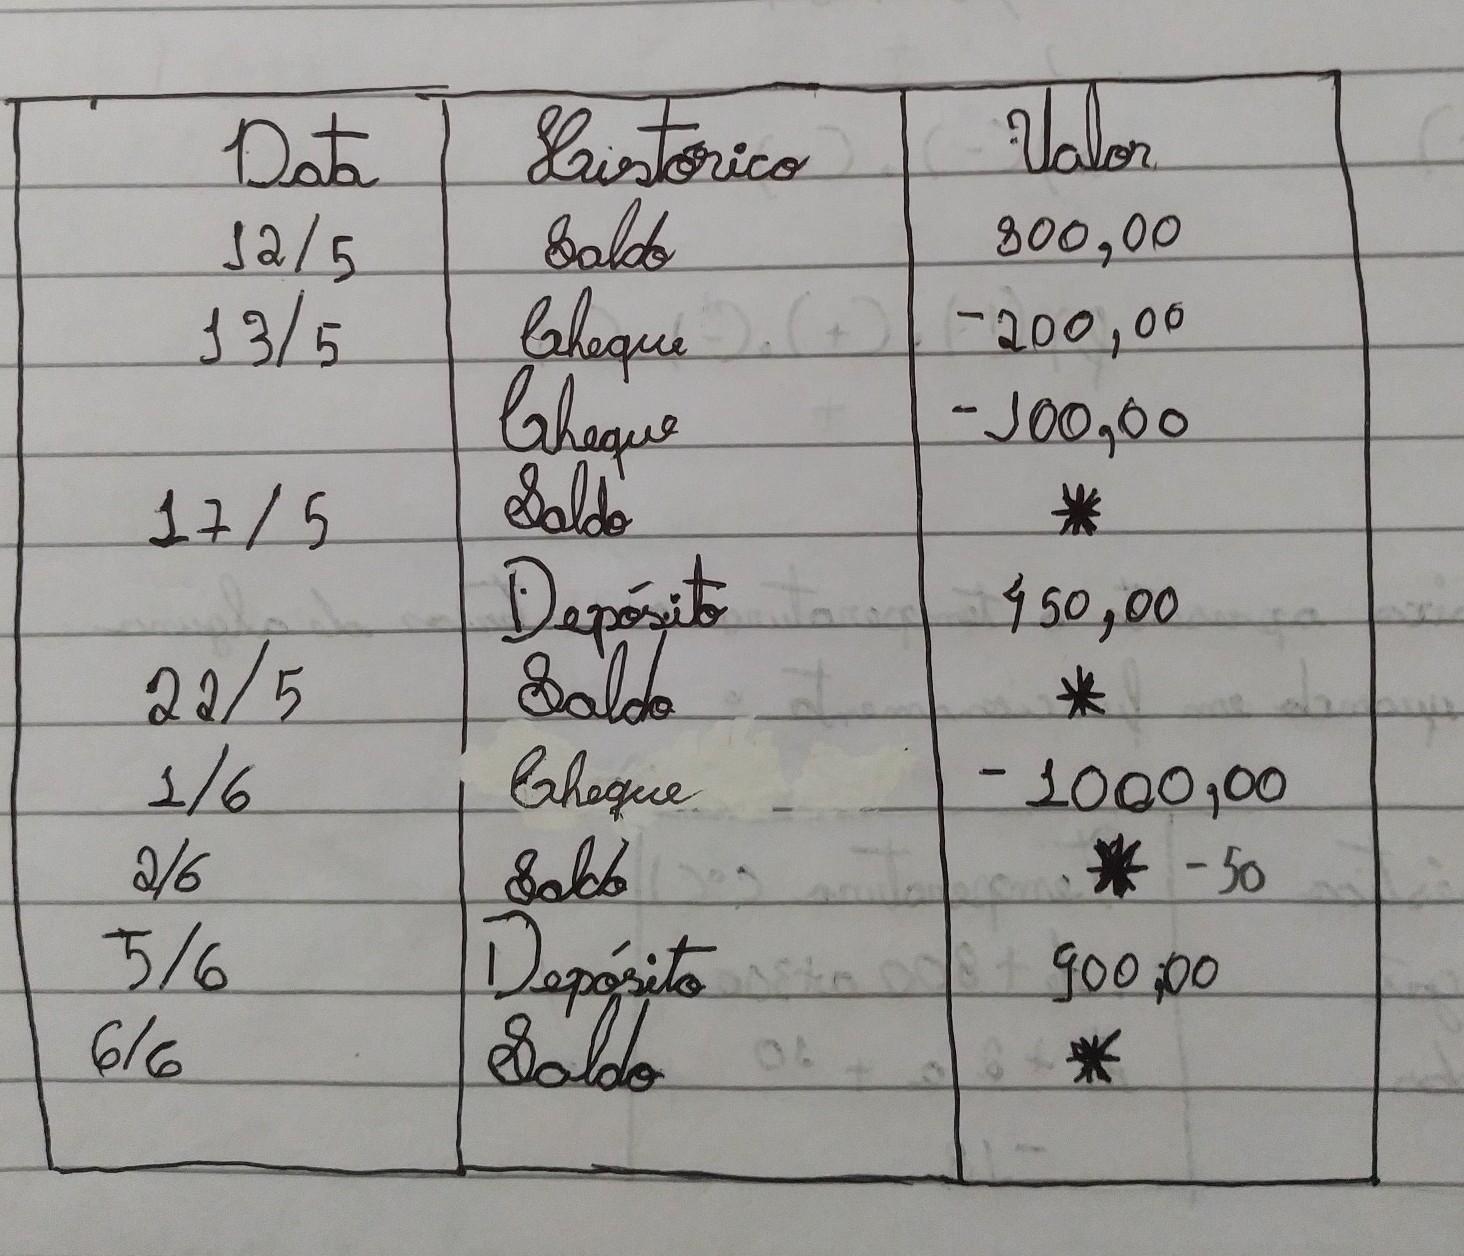 Data Histórico Valor
12/5 Saldo 800,00
13/5 Cheque -200,00
Cheque -100,00
17/5 Saldo *
Depósito 450,00
22/5 Saldo *
1/6 Cheque -1000,00
2/6 Saldo * -50
5/6 Depósito 900,00
6/6 Saldo *